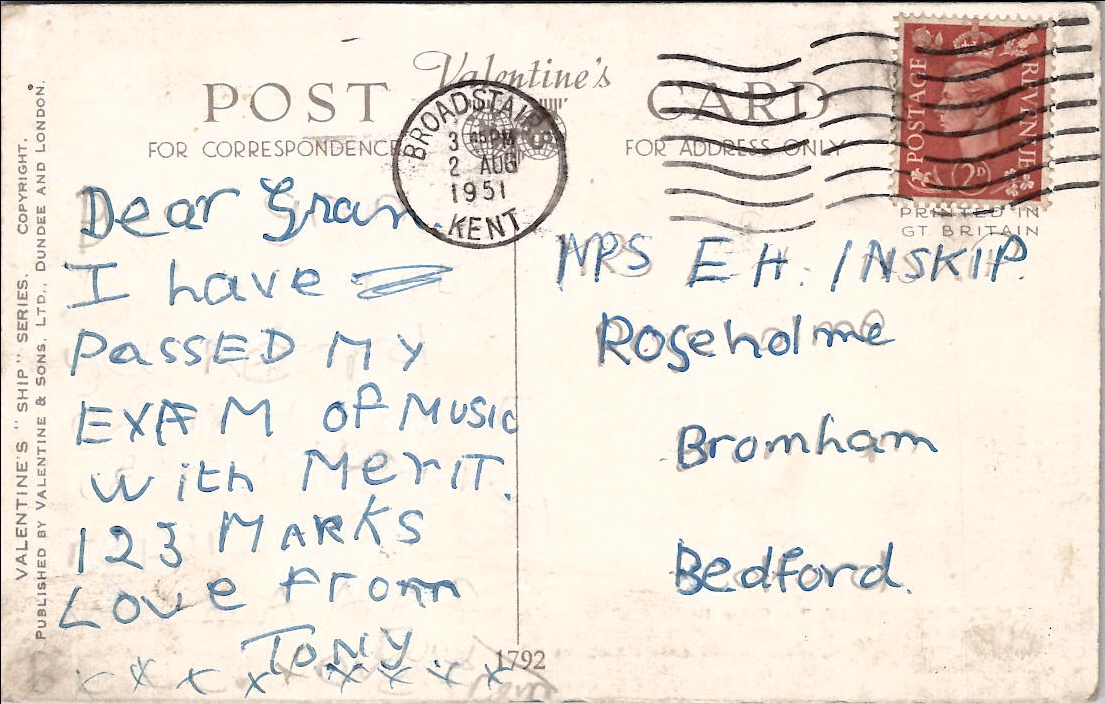 VALENTINE'S "SHIP" SERIES. COPYRIGHT.
PUBLISHED BY VALENTINE & SONS, LTD., DUNDEE AND LONDON.
Valentine's
POST CARD
FOR CORRESPONDENCE
FOR ADDRESS ONLY
BROADSTAIRS
2 AUG
1951
KENT
POSTAGE REVENUE
2D
PRINTED IN
GT. BRITAIN
Dear Gran.
I have
PassED MY
EXAM of MUSIC
with MerIT.
123 MARKS
Love from
TONY
x x x x x x x x x
MRS E H. INSKIP.
Roseholme
Bromham
Bedford.
1792